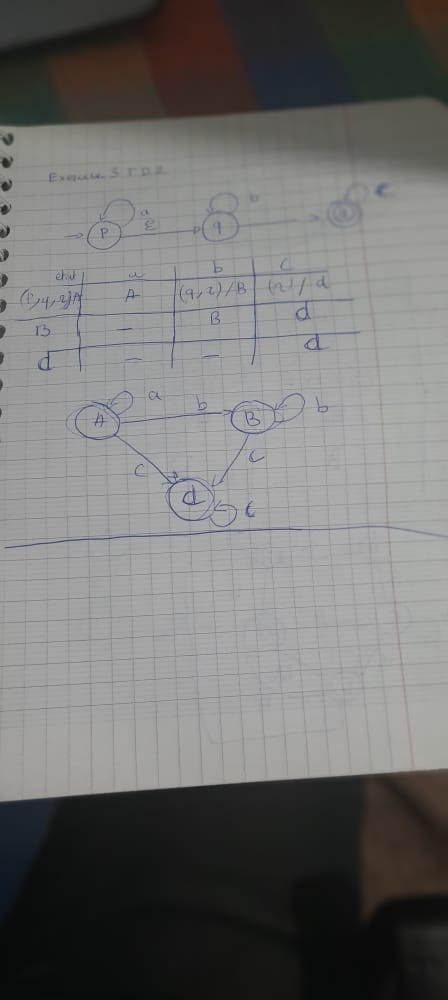 Exercice 3 TD2
a b c
p ε q
état a b c
(p,q,r)A A (q,r)/B (r)/d
B — B d
d — — d
a b
A B b
c c
d c